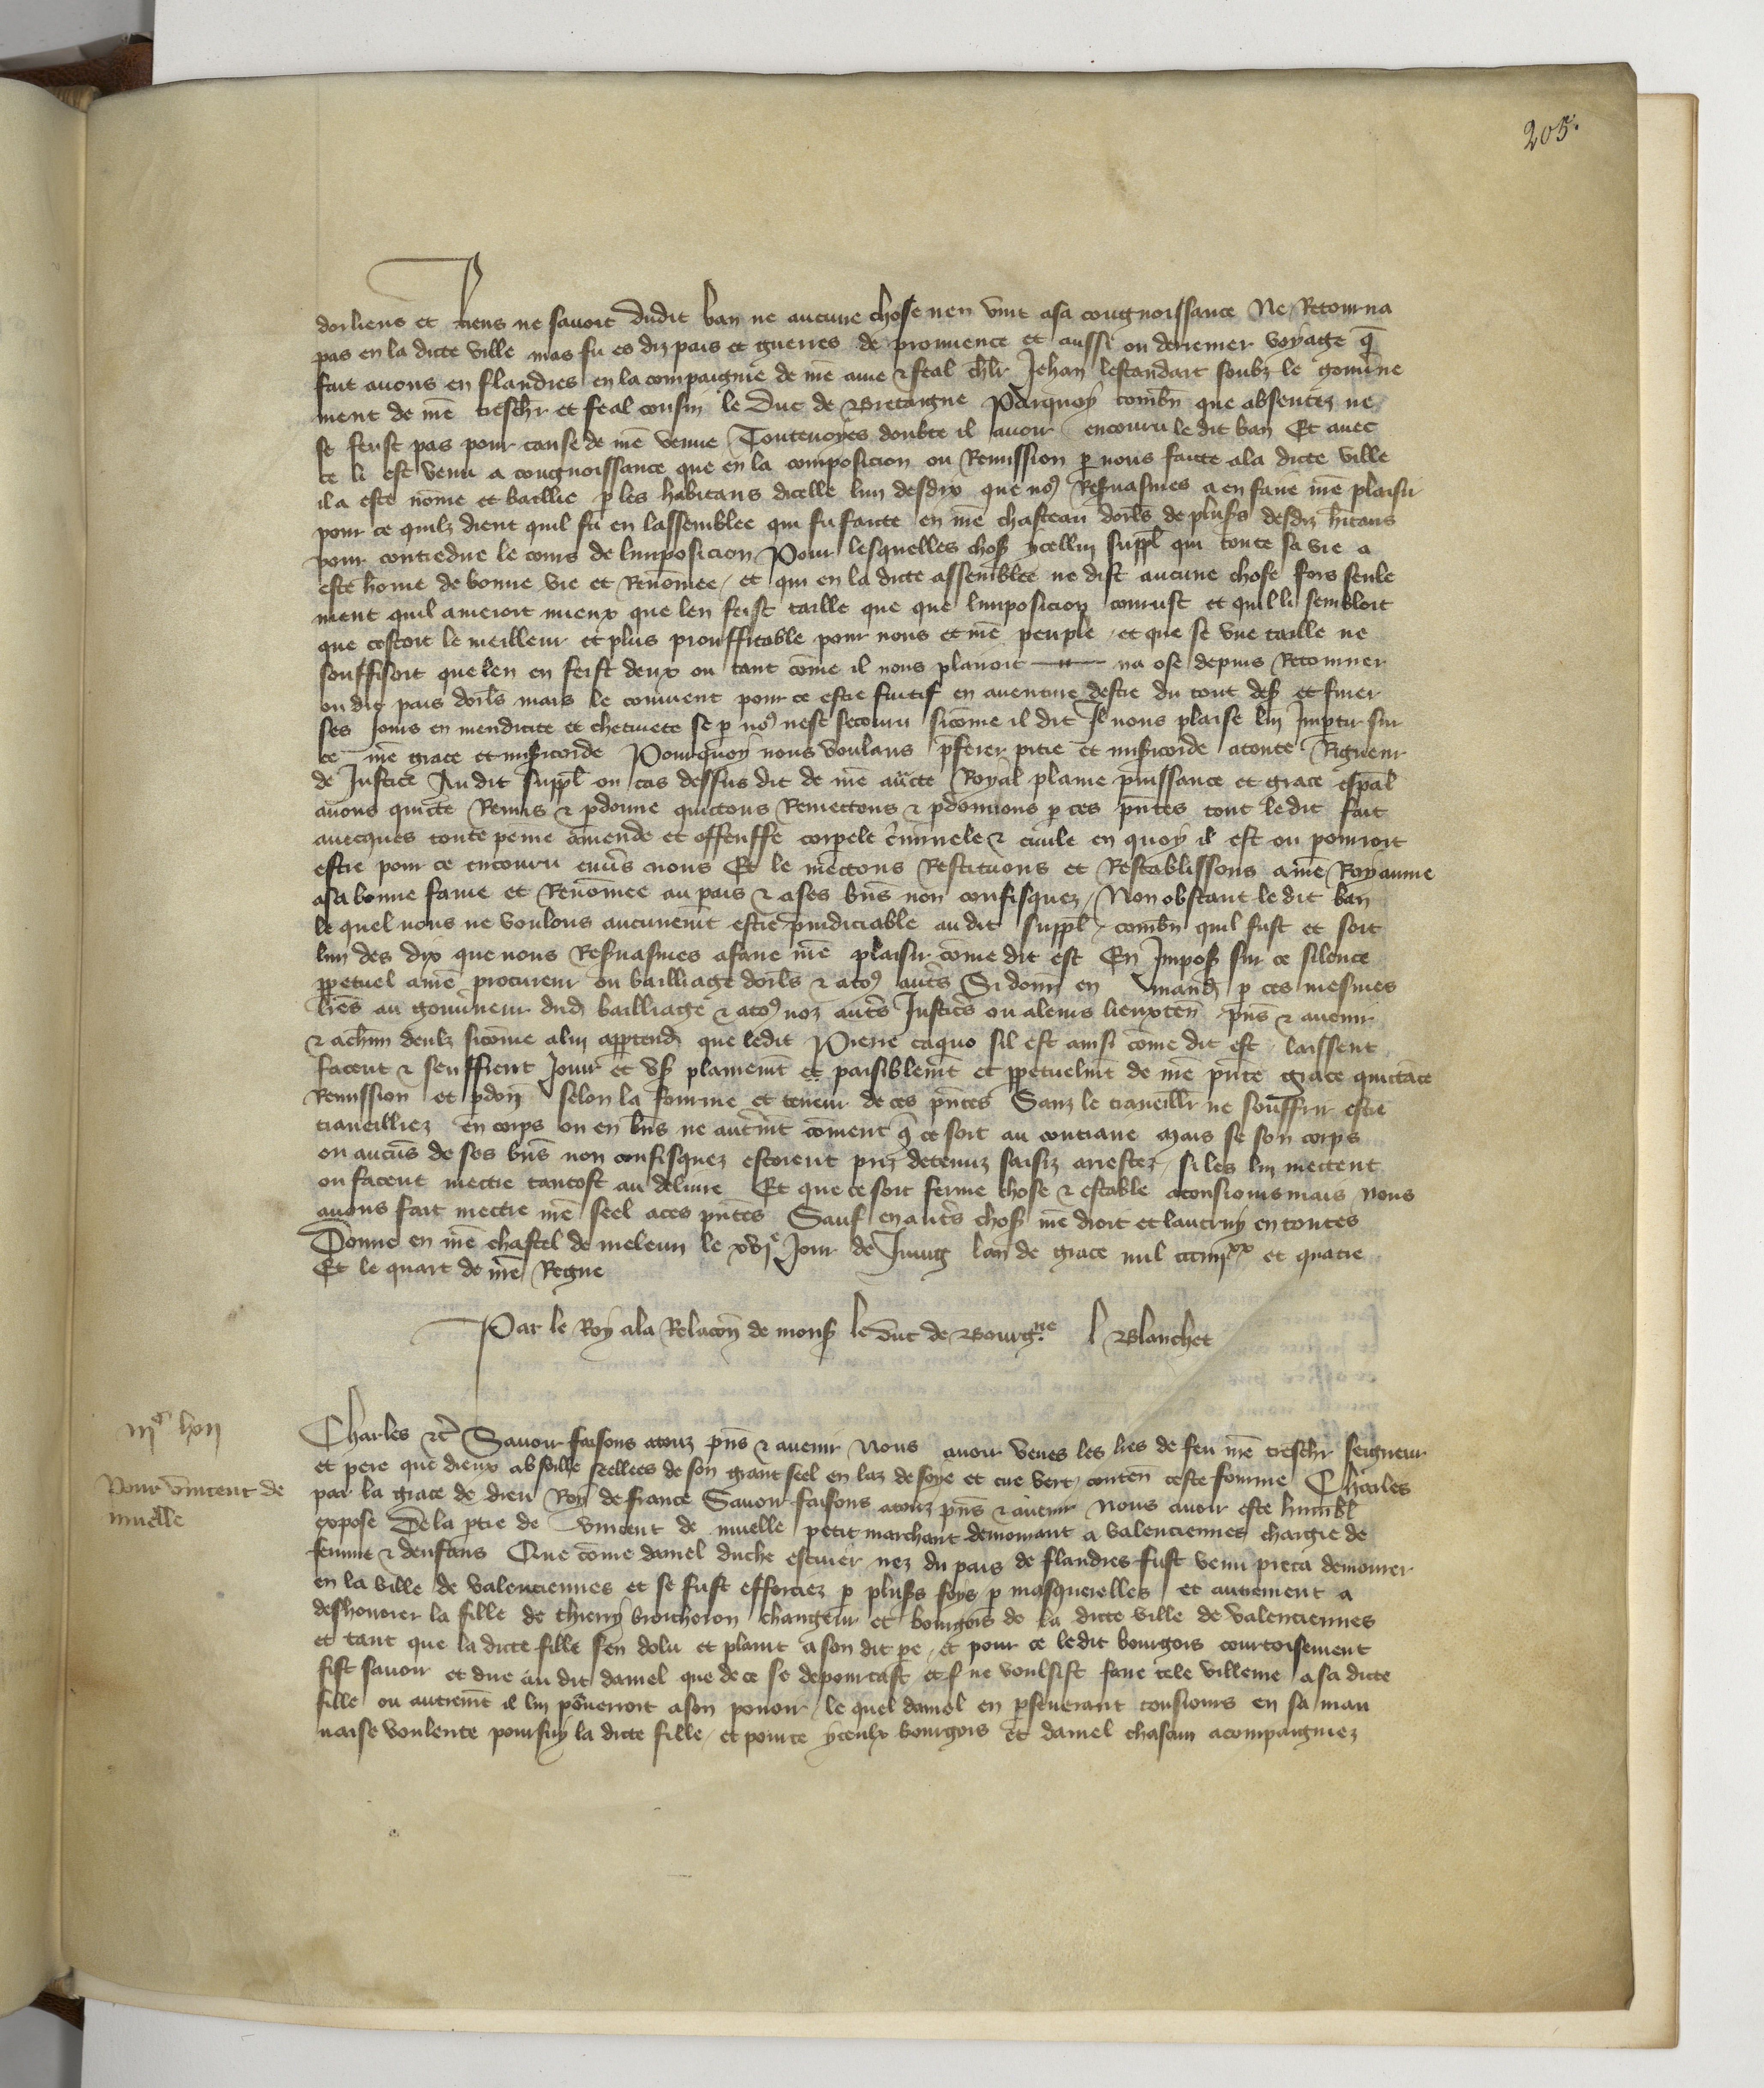 205.
dorliens et Riens ne savoit dudit ban ne aucune chose nen vint asa congnoissance Ne Retourna
pas en la dicte ville mas fu es diz pais et guerres de prouvence et aussi ou derrenier voyage q̄
fait avons en flandres en la compaignie de n̄re ame & feal chlr Jehan lestandart soubz le gouv̄ne
ment de n̄re treschr et feal cousin le Duc de Bretaigne Parquoy combn que absentez ne
se feust pas pour cause de n̄re venue Toutevoyes doubte il avoir encouru le dit ban Et avec
ce li est venu a congnoissance que en la composicion ou Remission p nous faicte ala dicte ville
il a este nōme et baillie p les habitans dicelle lun desdix que no9 Resvasmes a en faire n̄re plaisir
pour ce quilz dient quil fu en lassemblee qui fu faicte en n̄re chasteau dorls de plus's desdiz hitans
pour contredire le cours de limposicion Pour lesquelles chos' ycelluy suppl qui toute sa vie a
este hōme de bonne vie et Renōmee et qui en la dicte assemblee ne dist aucune chose fors seule
ment quil ameroit mieux que len feist taille que que limposicion courust et quil li sembloit
que cestoit le meilleur et plus prouffitable pour nous et n̄re peuple et que se une taille ne
souffisoit que len en feist deux ou tant cōme il nous plairoit na ose depuis Retourner
ou dit pais dorls mais le convient pour ce estre fuitif en aventure destre du tout des' et finer
ses jours en mendicite et chetivete se p no9 nest secouru sicōme il dit Il nous plaise luy Impartir sur
ce n̄re grace et mis'icorde Pourquoy nous voulans p̄ferer pitie et mis'icorde atoute Rigueur
de Justice Au dit suppl ou cas dessus dit de n̄re aucte Royal plaine puissance et grace esp̄al
avons quicte Remis & pdonne quictons Remectons & pdonnons p ces p̄ntes tout ledit fait
avecques toute peine amende et offense corpele c'minele & civile en quoy il est ou pourroit
estre pour ce encouru envs nous Et le mectons Restituons et Restablissons a n̄re Royaume
asa bonne fame et Renōmee au pais & ases bns non confisquez Non obstant le dit ban
le quel nous ne voulons aucunemt estre p̄iudiciable au dit suppl combn quil fust et soit
lun des dix que nous Resvasmes afaire n̄re plaisir cōme dit est En Impos' sur ce silence
ppetuel a n̄re procureur ou bailliage dorls & ato9 autrs Si donn en mand' p ces mesmes
lres au gouv̄neur dud' bailliage & ato9 noz autrs Justic's ou aleurs lieuxten' p̄ns & avenir
& achun deulz sicōme aluy appertend' que ledit Pierre caquo sil est ainsi cōme dit est laissent
facent & seuffrent Jouir et us' plainemt et paisiblemt et ppetuelmt de n̄re p̄nte grace quictāce
Remission et pdon selon la fourme et teneur de ces p̄ntes Sanz le traveillr ne souffrir estre
traveilliez en corps ou en bns ne autremt cōment q̄ ce soit au contraire Mais se son corps
ou aucūs de ses bns non confisquez estoient priz detenuz saisiz arrestez si les luy mectent
ou facent mectre tantost au delivre Et que ce soit ferme chose & estable atousioursmais Nous
avons fait mectre n̄re seel aces p̄ntes Sauf en autrs chos' n̄re droit et lautruy en toutes
Donne en n̄re chastel de meleun le xvie Jour de Juing lan de grace mil cccIIIIxx et quatre
Et le quart de n̄re Regne
Par le Roy ala Relacōn de mons' le duc de Bourg.ne L Blanchet
Pour vincent de
muelle
Charles etc Savoir faisons atouz p̄ns & avenir Nous avoir veues les lres de feu n̄re treschr Seigneur
et pere que dieux absoille seellees de son grant seel en laz de soye et cire vert conten' ceste fourme Charles
par la grace de dieu Roy de france Savoir faisons atouz p̄ns & avenir Nous avoir este humbl
expose De la ptie de vincent de muelle petit marchant demourant a valenciennes chargie de
femme & denfans Que cōme daniel duche escuier nez du pais de flandres fust venu pieca demourer
en la ville de valenciennes et se fust efforciez p plus's foys p maquerelles et autrement a
deshonorer la fille de thierry brocheron changeur et bourgois de la dicte ville de valenciennes
et tant que la dicte fille sen dolu et plaint a son dit pe et pour ce ledit bourgois courtoisement
fist savoir et dire au dit daniel que de ce se depourtast et ne voulsist faire tele villenie asa dicte
fille ou autremt il luy pōverroit a son povoir le quel daniel en pseverant tousiours en sa mau
vaise voulente poursuy la dicte fille et pour ce yceulx bourgois et daniel chascun acompaigniez